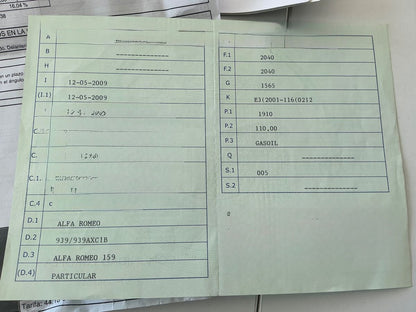 16,04 %
OS EN LA
un plazo
el ángulo
A
B --------------
H --------------
I 12-05-2009
(I.1) 12-05-2009
C.
C.1.
C.4 c
D.1 ALFA ROMEO
D.2 939/939AXC1B
D.3 ALFA ROMEO 159
(D.4) PARTICULAR
F.1 2040
F.2 2040
G 1565
K E3(2001-116(0212
P.1 1910
P.2 110,00
P.3 GASOIL
Q --------------
S.1 005
S.2 --------------
Tarifa: